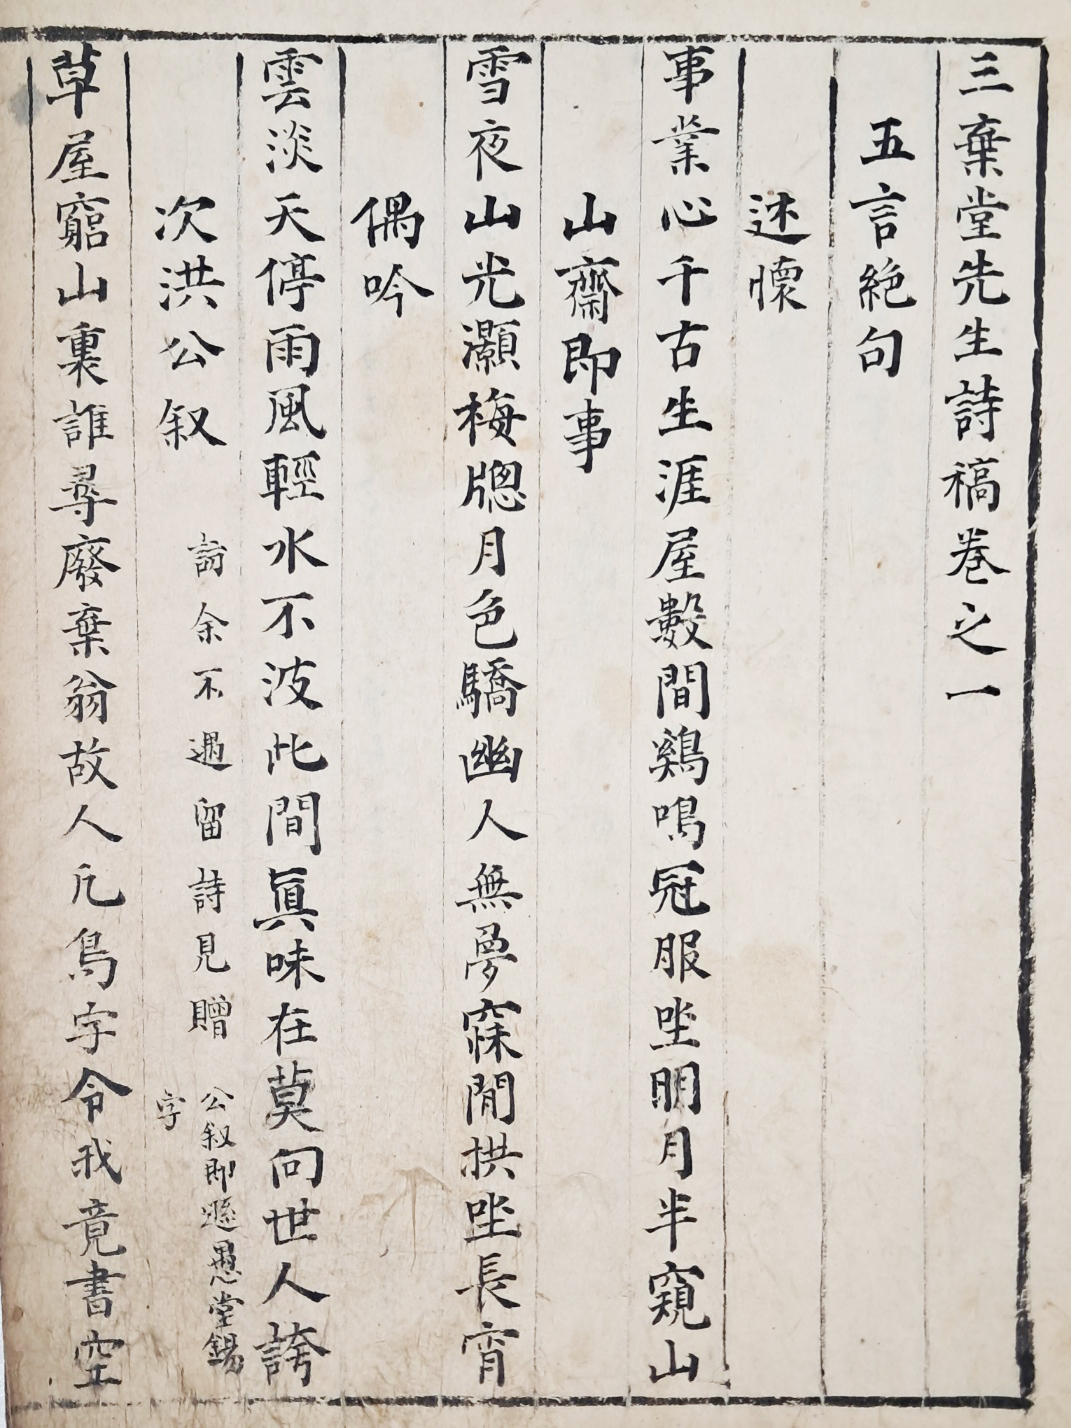 三棄堂先生詩稿卷之一
五言絶句
述懷
事業心千古生涯屋數間鷄鳴冠服坐明月半窺山
山齋即事
雪夜山光灝梅牕月色驕幽人無夢寐閒拱坐長宵
偶吟
雲淡天停雨風輕水不波此間眞味在莫向世人誇
次洪公叙
訪余不遇留詩見贈
公叙即遜愚堂錫
字
草屋窮山裏誰尋廢棄翁故人凡鳥字令我竟書空